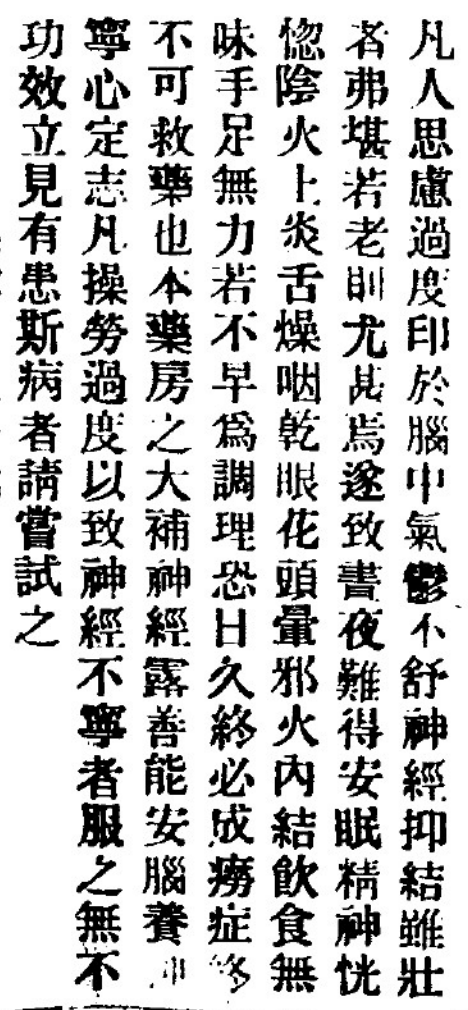 凡人思慮過度印於腦中氣鬱不舒神經抑結雖壯
者弗堪若老則尤甚焉遂致晝夜難得安眠精神恍
惚陰火上炎舌燥咽乾眼花頭暈邪火內結飲食無
味手足無力若不早為調理恐日久終必成癆症終
不可救藥也本藥房之大補神經露善能安腦養神
寧心定志凡操勞過度以致神經不寧者服之無不
功效立見有患斯病者請嘗試之